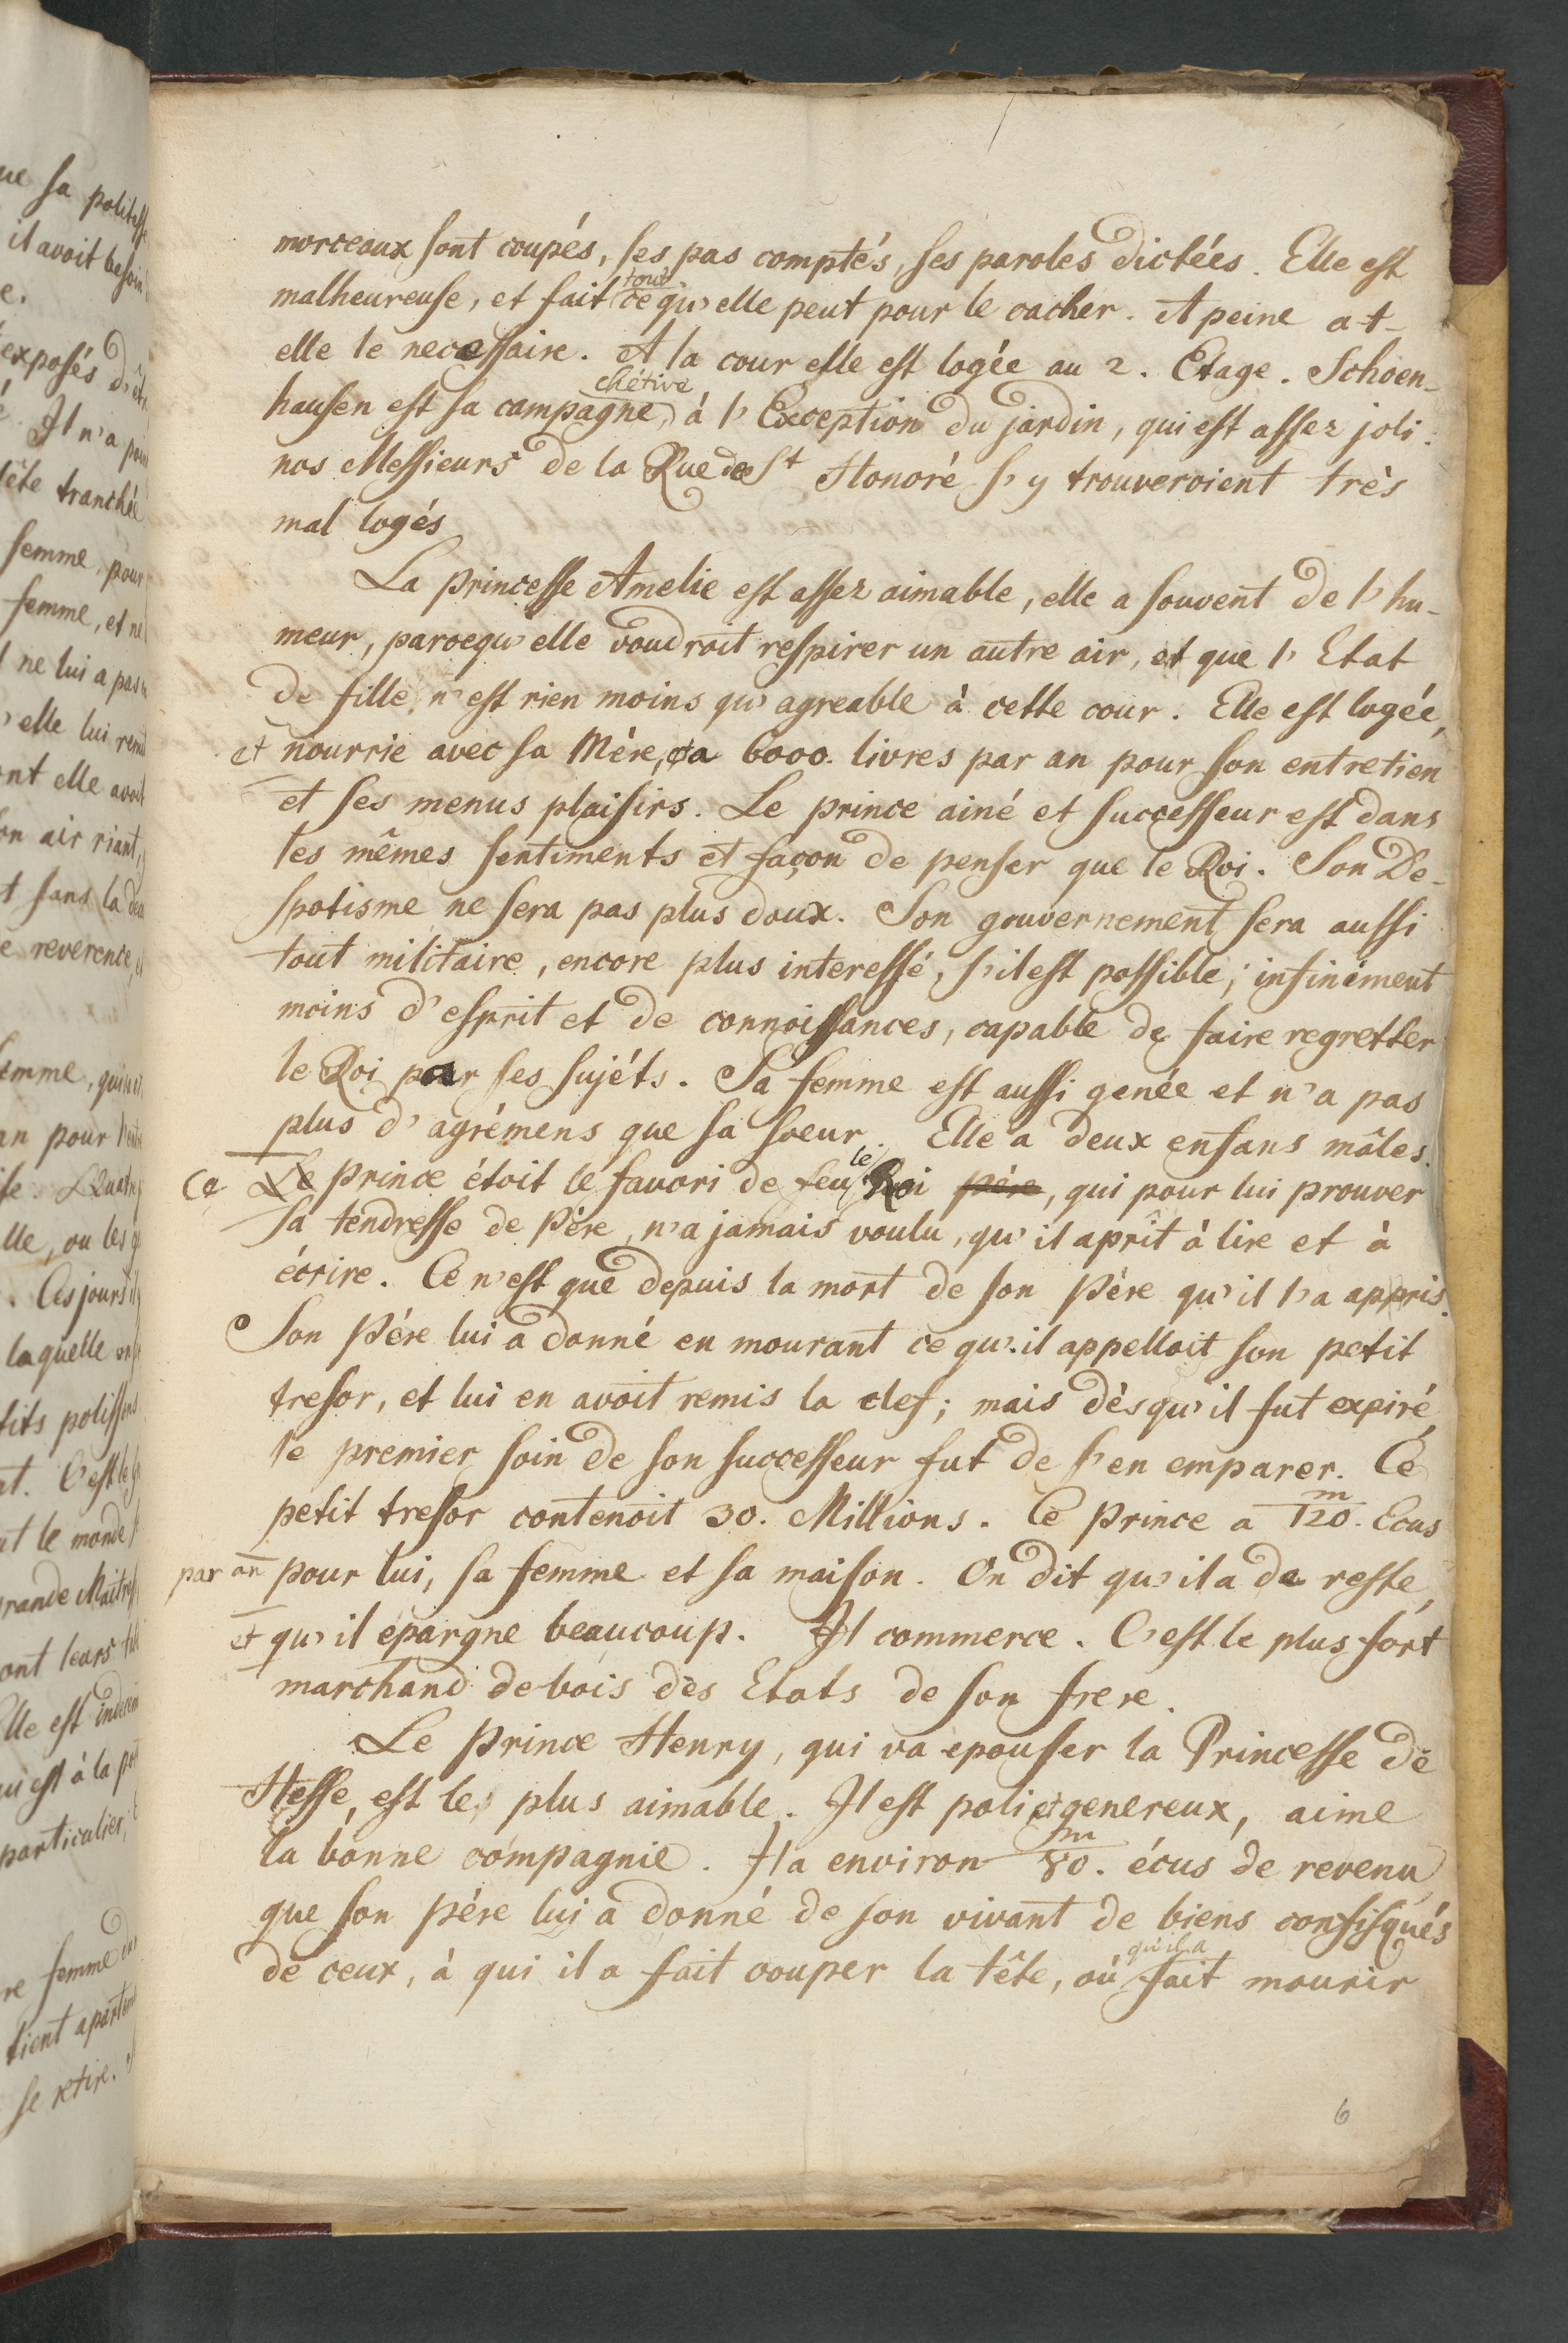 morceaux sont coupés, ses pas comptés, ses paroles dictées. Elle est
malheureuse, et fait tout ce qu'elle peut pour le cacher. A peine a-t-
elle le necessaire. A la cour elle est logée au 2. Etage. Schoen-
hausen est sa chétive campagne, à l'Exception du jardin, qui est assez joli.
nos Messieurs de la Rue de St Honoré s'y trouveroient très
mal logés
La princesse Amelie est assez aimable, elle a souvent de l'hu-
meur, parcequ'elle voudroit respirer un autre air, et que l'Etat
de fille n'est rien moins qu'agreable à cette cour. Elle est logée,
et nourrie avec sa Mère, a 6000. livres par an pour son entretien
et ses menus plaisirs. Le prince ainé et successeur est dans
les mêmes sentiments et façon de penser que le Roi. Son De-
spotisme ne sera pas plus doux. Son gouvernement sera aussi
tout militaire, encore plus interessé, s'il est possible; infiniment
moins d'esprit et de connoissances, capable de faire regretter
le Roi par ses sujéts. Sa femme est aussi genée et n'a pas
plus d'agrémens que sa soeur. Elle a deux enfans mâles.
Ce Le prince étoit le favori de feu le Roi père, qui pour lui prouver
sa tendresse de Père, n'a jamais voulu, qu'il aprît à lire et à
écrire. Ce n'est que depuis la mort de son Père qu'il l'a appris.
Son Pére lui a donné en mourant ce qu'il appelloit son petit
tresor, et lui en avoit remis la clef; mais dèsqu'il fut expiré,
le premier soin de son successeur fut de s'en emparer. Ce
petit tresor contenoit 30. Millions. Ce prince a 120.m Ecus
par an pour lui, sa femme et sa maison. On dit qu'il a de reste,
et qu'il epargne beaucoup. Il commerce. C'est le plus fort
marchand de bois des Etats de son frere.
Le prince Henry, qui va epouser la Princesse de
Hesse, est le plus aimable. Il est poli et genereux, aime
la bonne compagnie. Il a environ 80.m écus de revenu
que son pére lui a donné de son vivant de biens confisqués
de ceux, à qui il a fait couper la tête, où qu'il a fait mourir
6